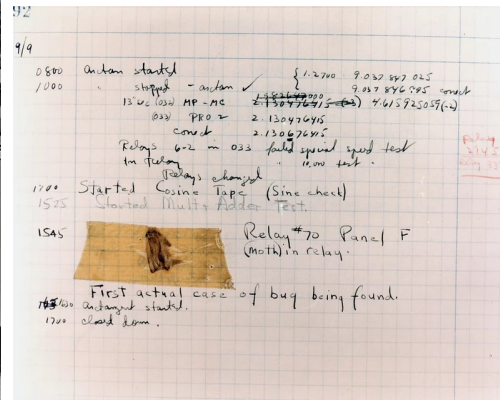 92
9/9
0800 antan started
1000 " stopped - antan ✓ { 1.2700 9.037 847 025
9.037 846 995 conect
13" uc (033) MP - MC 2.130476415 (-3) 4.615925059(-2)
(033) PRO 2 2.130476415
conect 2.130676415
Relays 6-2 in 033 failed special speed test
in relay " 10.000 test.
Relays changed
1700 Started Cosine Tape (Sine check)
1525 Started Mult + Adder Test.
1545 Relay #70 Panel F
(moth) in relay.
First actual case of bug being found.
1630 antangent started.
1700 closed down.